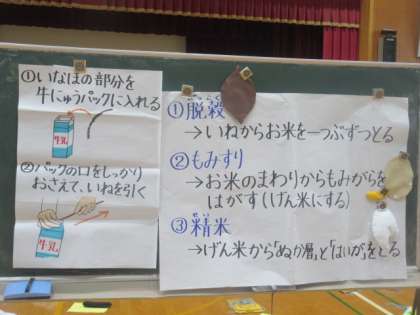 ①いなほの部分を
牛にゅうパックに入れる
牛乳
②パックの口をしっかり
おさえて、いねを引く
牛乳
①脱穀
→いねからお米を一つぶずつとる
②もみすり
→お米のまわりからもみがらを
はがす(げん米にする)
③精米
→げん米から「ぬか層」と「はいが」をとる